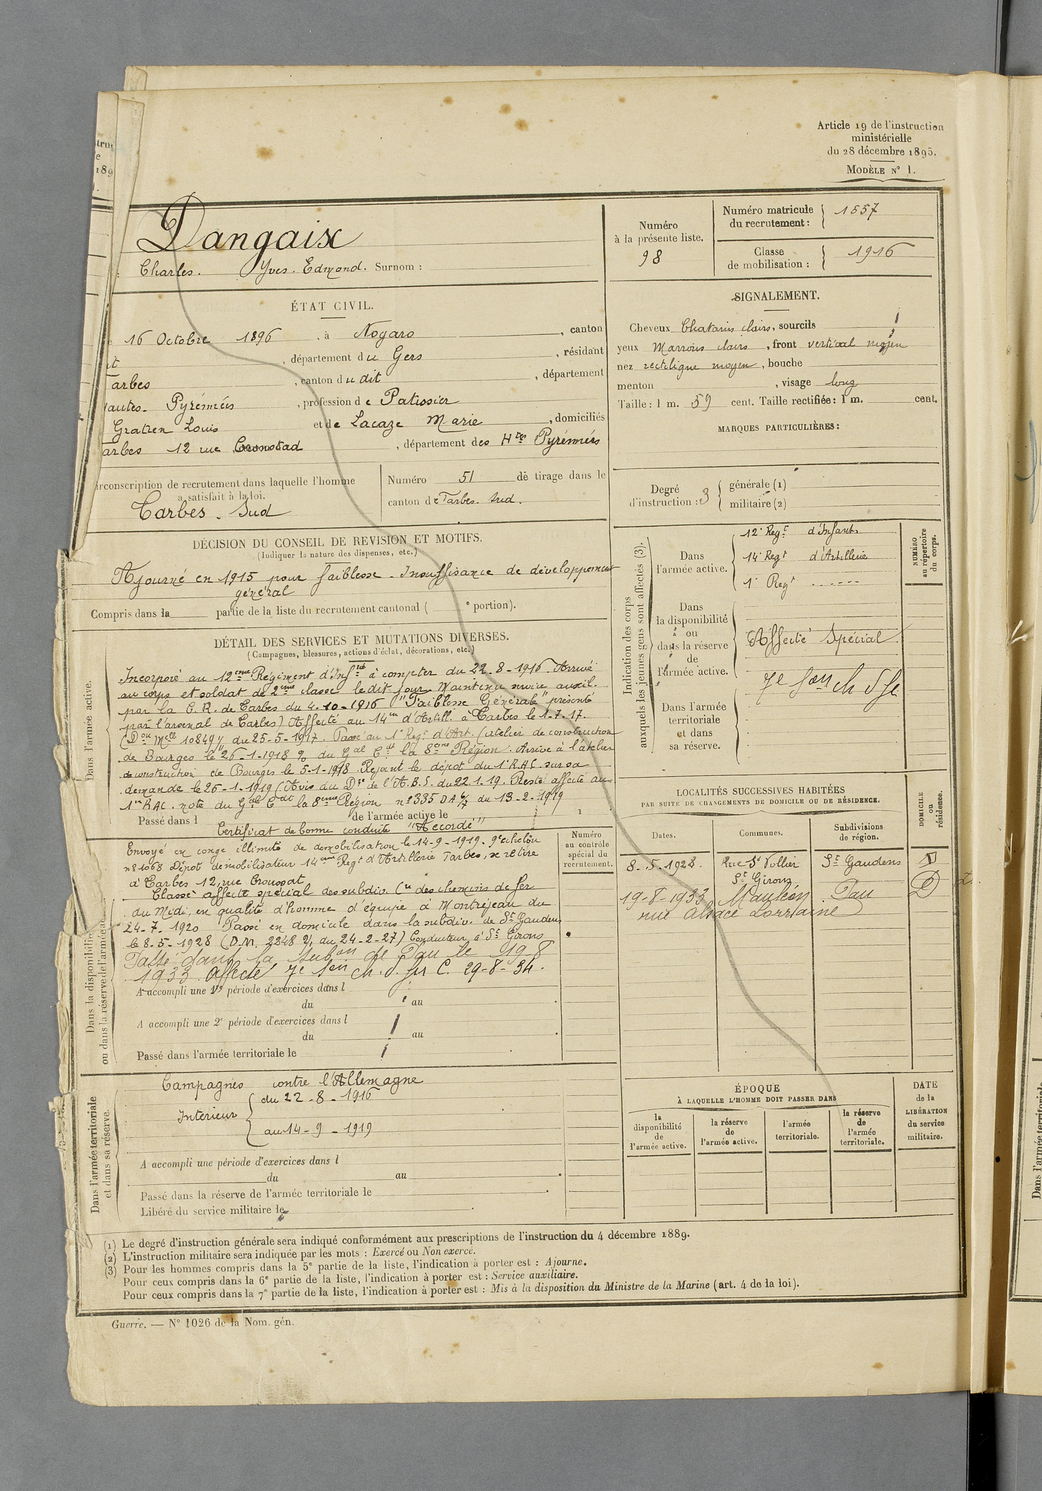 Article 19 de l'instruction
ministérielle
du 28 décembre 1895.
MODÈLE N° 1.
Dangaix
Charles. Yves. Edmond. Surnom :
Numéro
à la présente liste.
98
Numéro matricule
du recrutement : 1557
Classe
de mobilisation : 1916
ÉTAT CIVIL.
16 Octobre 1896, à Nogaro, canton
, département du Gers, résidant
arbes, canton du dit, département
autes-Pyrénées, profession de Patissier
Gratien Louis et de Lacaze Marie, domiciliés
arbes 12 rue Cronstad, département des Htes Pyrénées
irconscription de recrutement dans laquelle l'homme
a satisfait à la loi.
Tarbes. Sud
Numéro 51 de tirage dans le
canton de Tarbes. Sud.
SIGNALEMENT.
Cheveux Chatains clairs, sourcils
yeux Marrons clairs, front vertical moyen
nez rectiligne moyen, bouche
menton , visage long
Taille : 1 m. 59 cent. Taille rectifiée : 1 m. cent.
MARQUES PARTICULIÈRES :
Degré
d'instruction : 3
générale (1)
militaire (2)
DÉCISION DU CONSEIL DE REVISION ET MOTIFS.
(Indiquer la nature des dispenses, etc.)
Ajourné en 1915 pour faiblesse. Insuffisance de développement
général
Compris dans la partie de la liste du recrutement cantonal ( e portion).
DÉTAIL DES SERVICES ET MUTATIONS DIVERSES.
(Campagnes, blessures, actions d'éclat, décorations, etc.)
Dans l'armée active.
Incorporé au 12eme Régiment d'Infrie à compter du 22-8-1916. Arrivé
au corps et soldat de 2eme classe le dit jour. Maintenu service auxil.
par la C.R. de Tarbes du 4-10-1916 "Faiblesse Générale" présenté
par l'arsenal de Tarbes) Affecté au 14me d'Artill. à Tarbes le 1-7-17.
(Don Mlle 10849/ du 25-5-1917. Passé au 1er Regt d'Art. (atelier de construction
de Bourges le 26-1-1918 du Gal Ct la 8eme Région. Arrivé à l'atelier
de construction de Bourges le 5-1-1918. Rejoint le dépot du 1er RAC sur sa
demande le 25-1-1919 (Avis au Dr de l'A.B.S. du 22.1.19. Resté affecté au
1er RAC. note du Gal Cdt la 8eme Région n° 335 DA du 13-2-1919
Passé dans l de l'armée active le
Certificat de bonne conduite "Accordé"
Envoyé en congé illimité de démobilisation le 14-9-1919. 9e échelon
n° 1068 Dépot démobilisateur 14eme Regt d'Artillerie Tarbes, se retire
à Tarbes 12, rue
Classé affecté spécial des subdiv. Cie des chemins de fer
du Midi, en qualité d'homme d'équipe à Montréjeau du
24-7-1920 Passé en domicile dans la subdiv. de St Gaudens
le 8-5-1928 (D.M. 2248 du 24-2-27) Conducteur à St Girons
Passé dans la subon de Pau le 19 8
1933. Affecté 7e Son ch. d. fer C. 29-8-34.
Numéro
au contrôle
spécial du
recrutement.
Dans la disponibilité
ou dans la réserve de l'armée a
A accompli une 1re période d'exercices dans l
du au
A accompli une 2e période d'exercices dans l
du au
Passé dans l'armée territoriale le
Dans l'armée territoriale
et dans sa réserve.
Campagnes contre l'Allemagne
Intérieur du 22-8-1916
au 14-9-1919
A accompli une période d'exercices dans l
du au
Passé dans la réserve de l'armée territoriale le
Libéré du service militaire le
Indication des corps
auxquels les jeunes gens sont affectés (3).
Dans
l'armée active.
12e Regt d'Infant.
14e Regt d'Artillerie
1er Regt ------
NUMÉRO
au répertoire
du corps.
Dans
la disponibilité
ou
dans la réserve
de
l'armée active.
Affecté Spécial
7e Son ch d fe
Dans l'armée
territoriale
et dans
sa réserve.
LOCALITÉS SUCCESSIVES HABITÉES
PAR SUITE DE CHANGEMENTS DE DOMICILE OU DE RÉSIDENCE.
Dates. Communes. Subdivisions
de région. DOMICILE
ou
résidence.
8-5-1928. Rue St Vallier St Gaudens D
St Girons
19-8-1933 Mauléon Pau D
rue Alsace Lorraine
ÉPOQUE
À LAQUELLE L'HOMME DOIT PASSER DANS
la
disponibilité
de
l'armée active.
la réserve
de
l'armée active.
l'armée
territoriale.
la réserve
de
l'armée
territoriale.
DATE
de la
LIBÉRATION
du service
militaire.
(1) Le degré d'instruction générale sera indiqué conformément aux prescriptions de l'instruction du 4 décembre 1889.
(2) L'instruction militaire sera indiquée par les mots : Exercé ou Non exercé.
(3) Pour les hommes compris dans la 5e partie de la liste, l'indication à porter est : Ajourné.
Pour ceux compris dans la 6e partie de la liste, l'indication à porter est : Service auxiliaire.
Pour ceux compris dans la 7e partie de la liste, l'indication à porter est : Mis à la disposition du Ministre de la Marine (art. 4 de la loi).
Guerre. — N° 1026 de la Nom. gén.